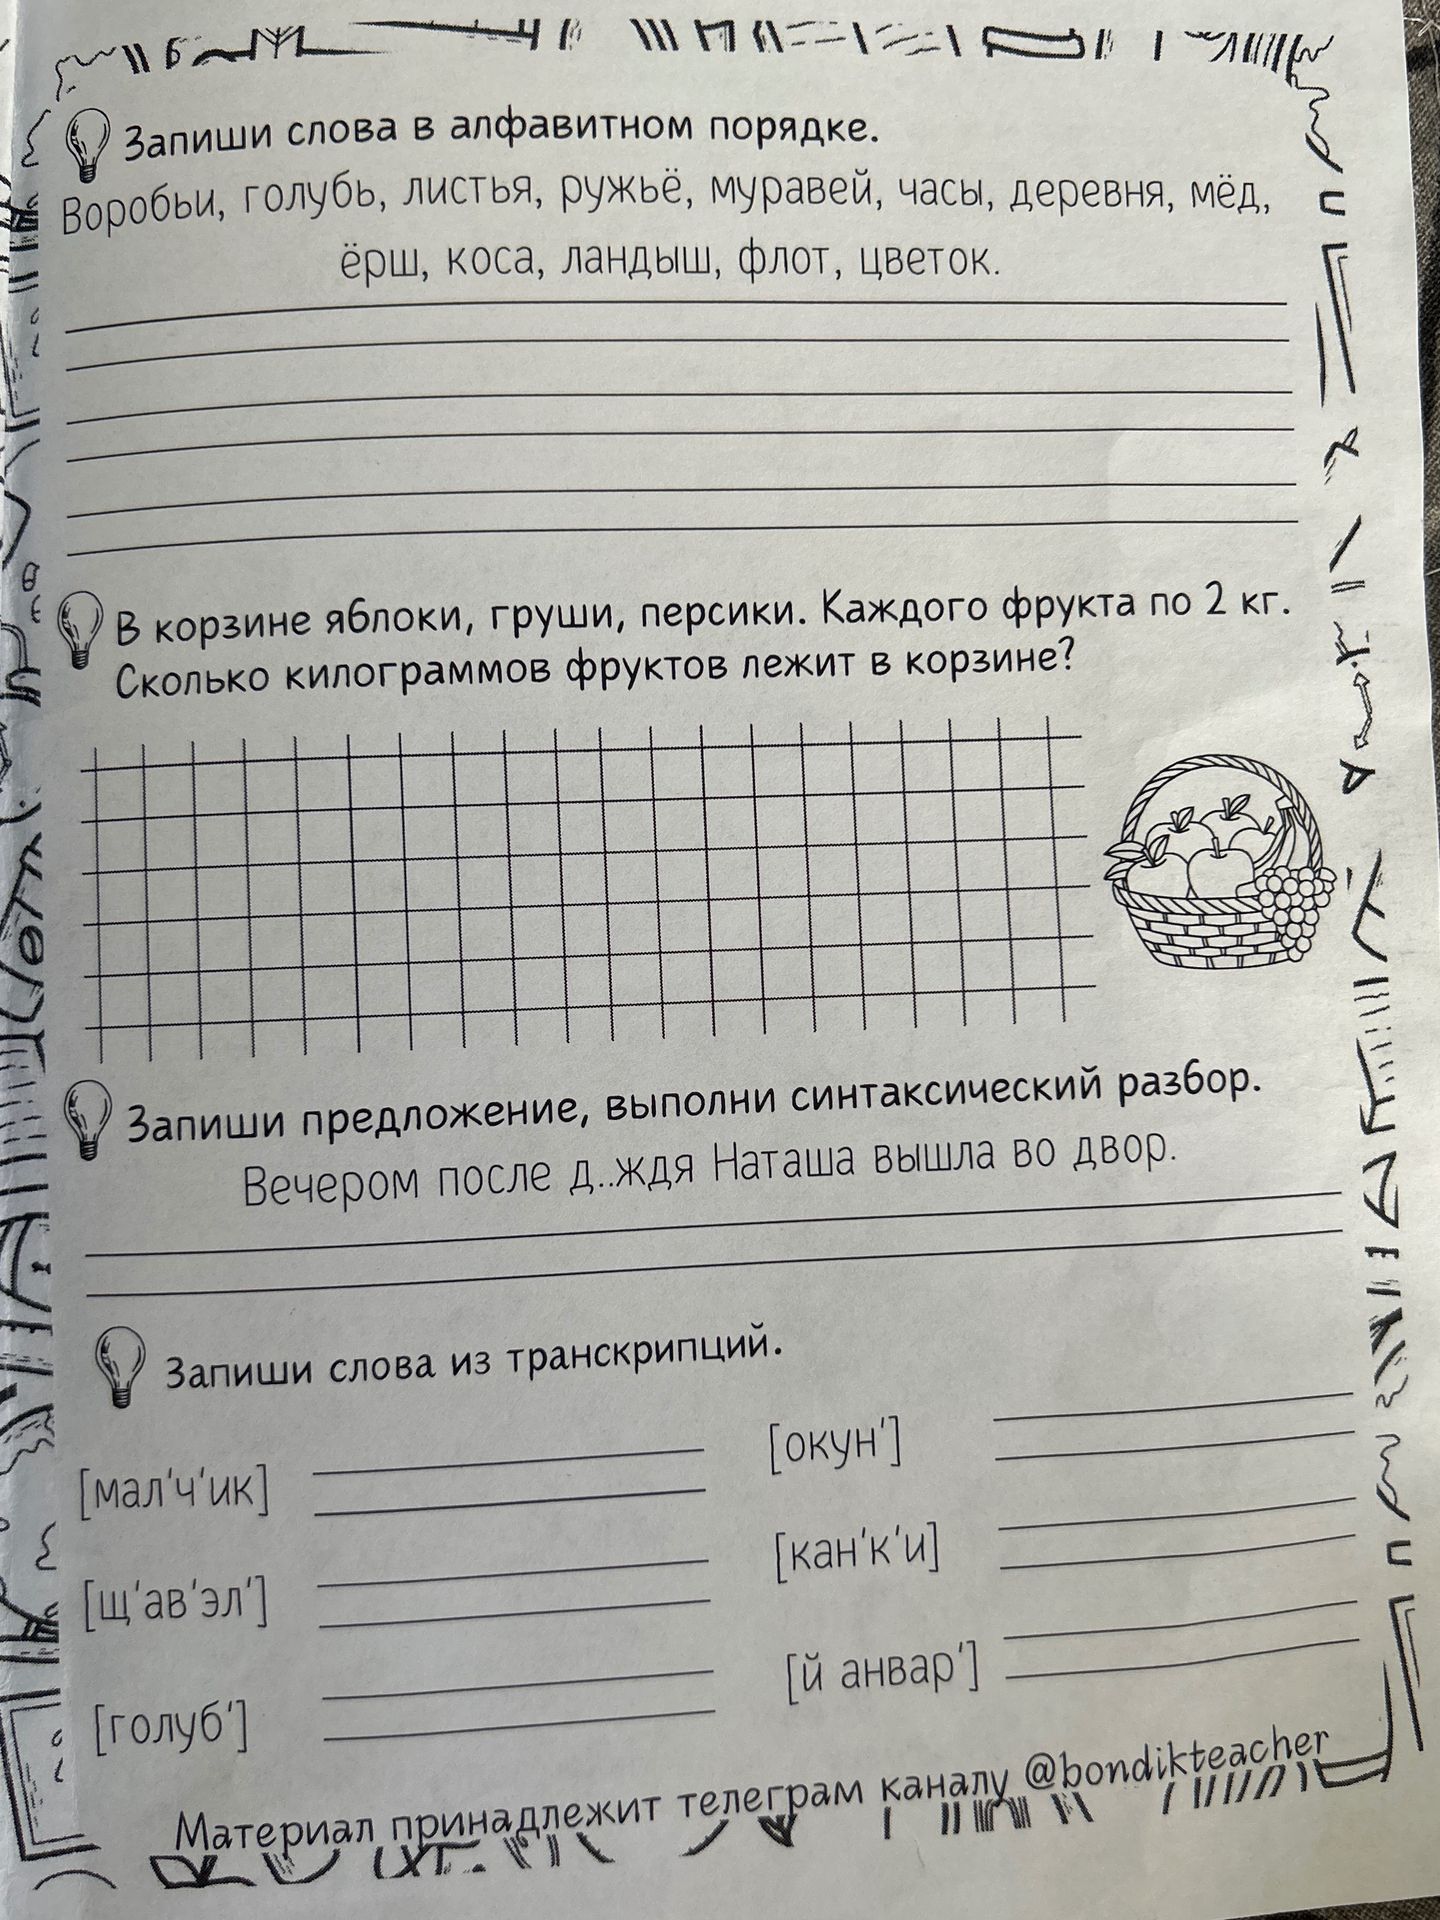 Запиши слова в алфавитном порядке.
Воробьи, голубь, листья, ружьё, муравей, часы, деревня, мёд,
ёрш, коса, ландыш, флот, цветок.
В корзине яблоки, груши, персики. Каждого фрукта по 2 кг.
Сколько килограммов фруктов лежит в корзине?
Запиши предложение, выполни синтаксический разбор.
Вечером после д..ждя Наташа вышла во двор.
Запиши слова из транскрипций.
[мал'ч'ик]
[окун']
[щ'ав'эл']
[кан'к'и]
[голуб']
[й анвар']
Материал принадлежит телеграм каналу @bondikteacher